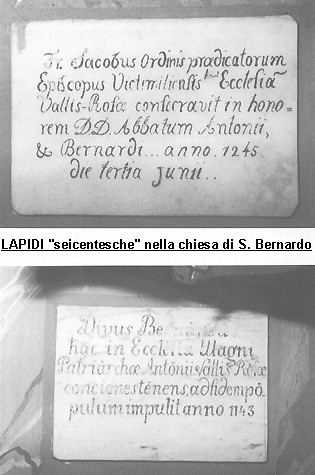 Fr. Jacobus Ordinis prædicatorum
Episcopus Victimiliensis Ecclesiã
Vallis-Rosæ consecravit in hono-
rem D.D. Abbatum Antonii,
& Bernardi... anno. 1245.
die tertia junii..
LAPIDI "seicentesche" nella chiesa di S. Bernardo
Divus
hac in Ecclesia Magni
Patriarchæ Antonii Vallis
conciones tenens, ad fidem põ
pulum impulit anno 1143